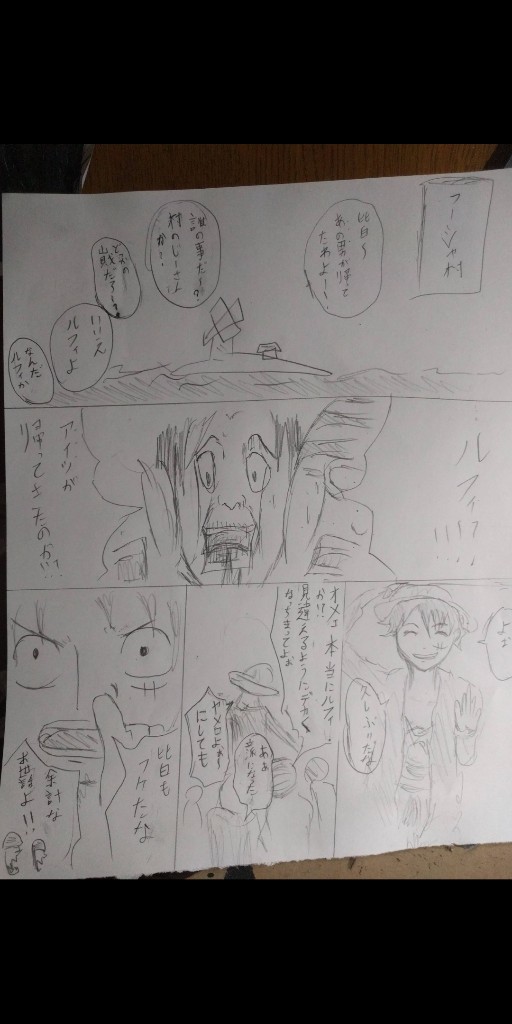 フーシャ村
皆〜
あの男が帰って
たわよー!
誰の事だー?
村のじーさん
か?
どこの
山賊だアー?
いいえ
ルフィよ
なんだ
ルフィか
ルフィ?!!!
アイツが
帰ってきたのか!!?
よお
久しぶりだな
オメェ本当にルフィ
か!!
見違えるようにデカく
なっちまってよお
あぁ
にしても
皆も
フケたな
余計な
お世話よ!!